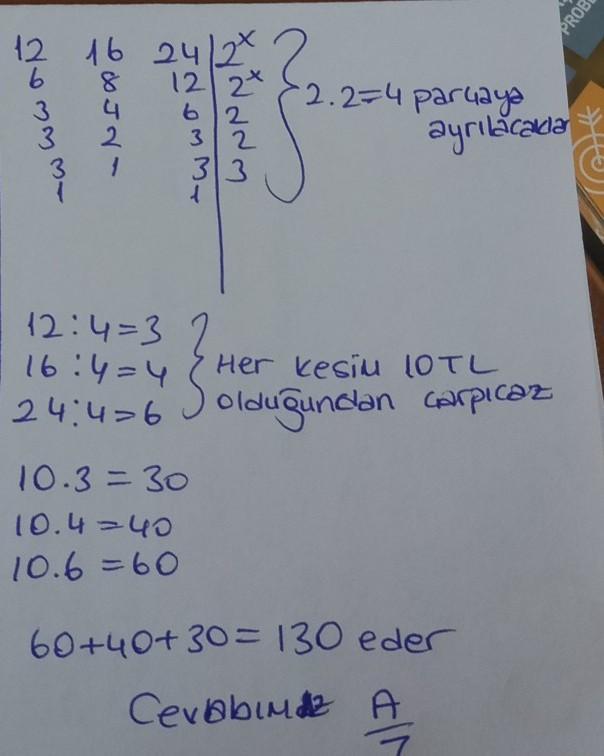 12 16 24 | 2x
6 8 12 | 2x
3 4 6 | 2
3 2 3 | 2
3 1 3 | 3
1 1
2.2=4 parçaya
ayrılacaklar
12:4=3
16:4=4
24:4=6
Her kesim 10TL
olduğundan çarpıcaz
10.3=30
10.4=40
10.6=60
60+40+30=130 eder
Cevabımız A
PROBL